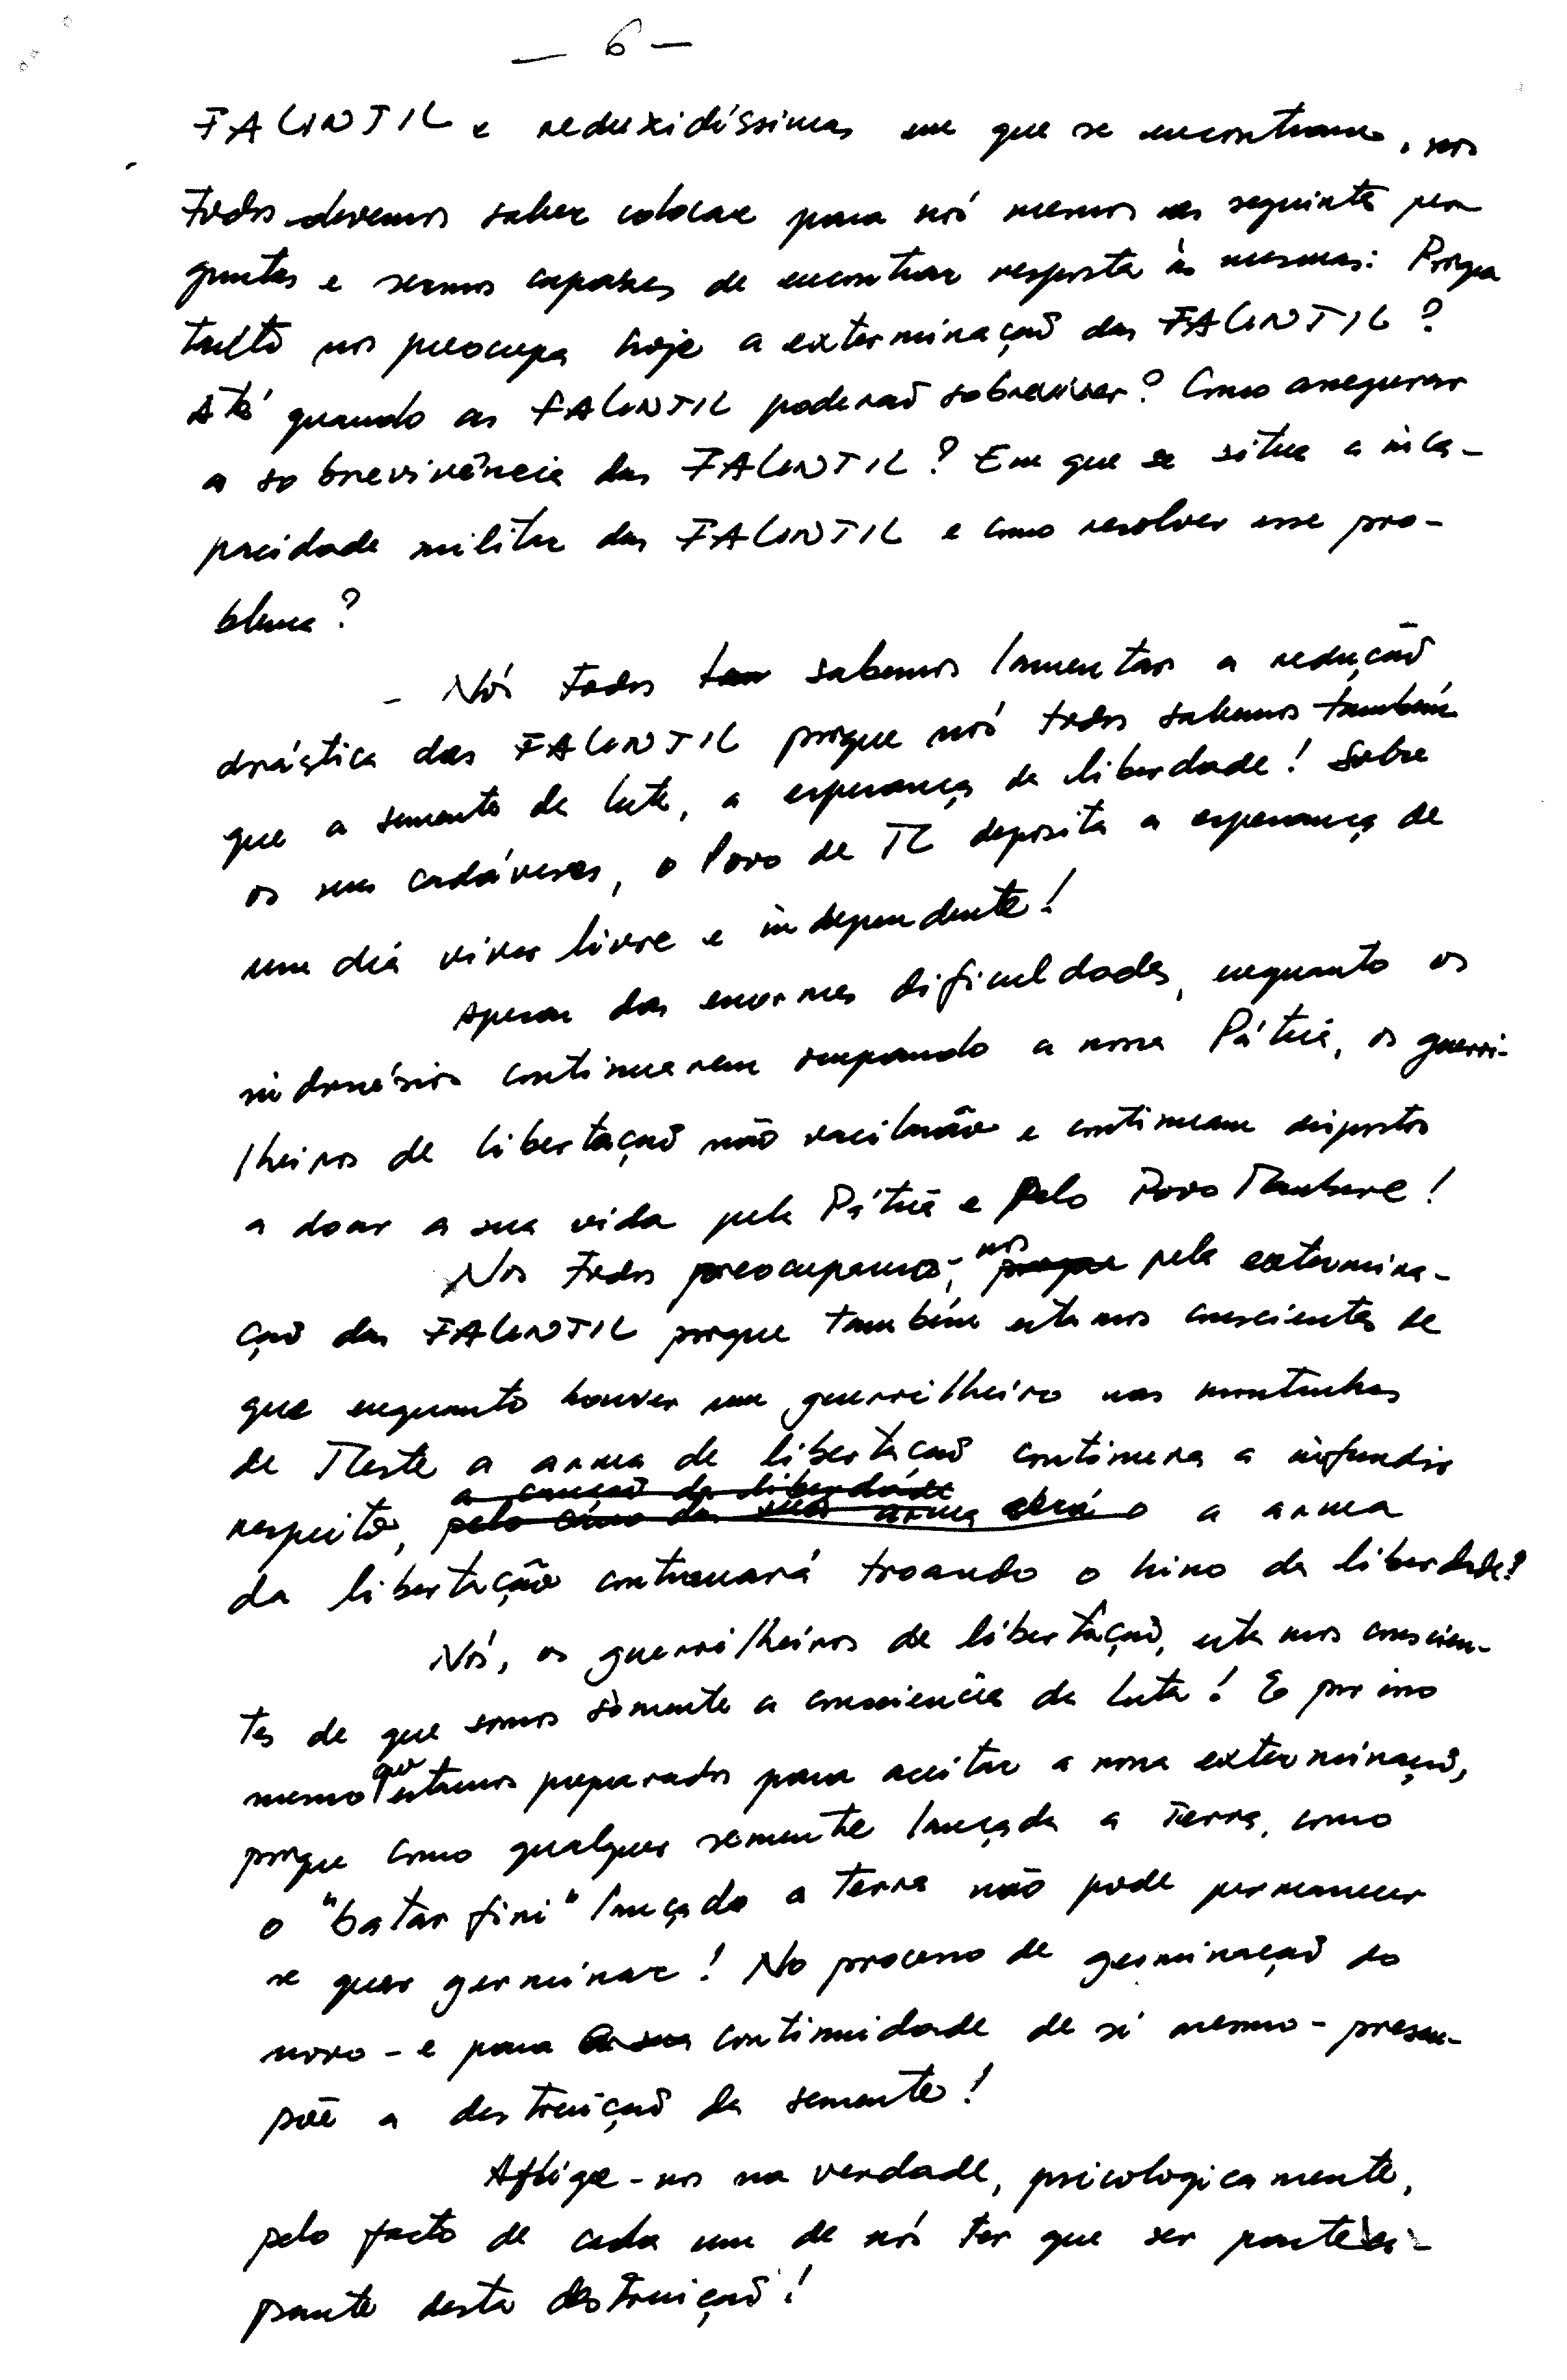 — 6 —
FALINTIL e reduzidíssimas em que se encontram, nos
todos devemos saber colocar para nós mesmos as seguintes per
guntas e sermos capazes de encontrar resposta às mesmas: Porque
tanto nos preocupa hoje a exterminação das FALINTIL?
Até quando as FALINTIL poderão sobreviver? Como assegurar
a sobrevivência das FALINTIL? Em que se situa a inca-
pacidade militar das FALINTIL e como resolver esse pro-
blema?
- Nós todos tam sabemos lamentar a redução
drástica das FALINTIL porque nós todos sabemos também
que a semente da luta, a esperança da liberdade! Sobre
os seus cadáveres, o Povo de TL deposita a esperança de
um dia viver livre e independente!
Apesar das enormes dificuldades, enquanto os
indonésios continuarem ocupando a nossa Pátria, os guerri-
lheiros de libertação não vacilarão e continuam dispostos
a doar a sua vida pela Pátria e pelo Povo Maubere!
Nos todos preocupamo-nos porque pela extermina-
ção das FALINTIL porque também estamos conscientes de
que enquanto houver um guerrilheiro nas montanhas
de Leste a arma de libertação continuara a infundir
a canção da liberdade
respeito, pelo cano da sua arma será o a arma
da libertação continuará troando o hino da liberdade!
Nós, os guerrilheiros de libertação, estamos conscien-
tes de que somos sòmente a consciência da luta! E por isso
mesmo que estamos preparados para aceitar a nossa exterminação,
porque como qualquer semente lançada a terra, como
o "batar fini" lançado a terra não pode permanecer
se quer germinar! No processo de germinação do
novo - e para a sua continuidade de si mesmo - pressu-
põe a destruição da semente!
Aflige-nos na verdade, psicologicamente,
pelo facto de cada um de nós ter que ser partici-
pante desta destruição!